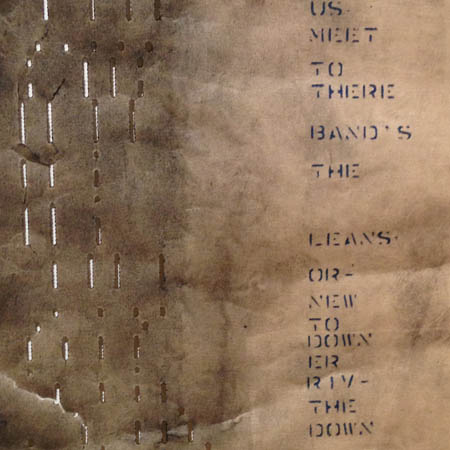 US.
MEET
TO
THERE
BAND'S
THE
LEANS.
OR-
NEW
TO
DOWN
ER
RIV-
THE
DOWN